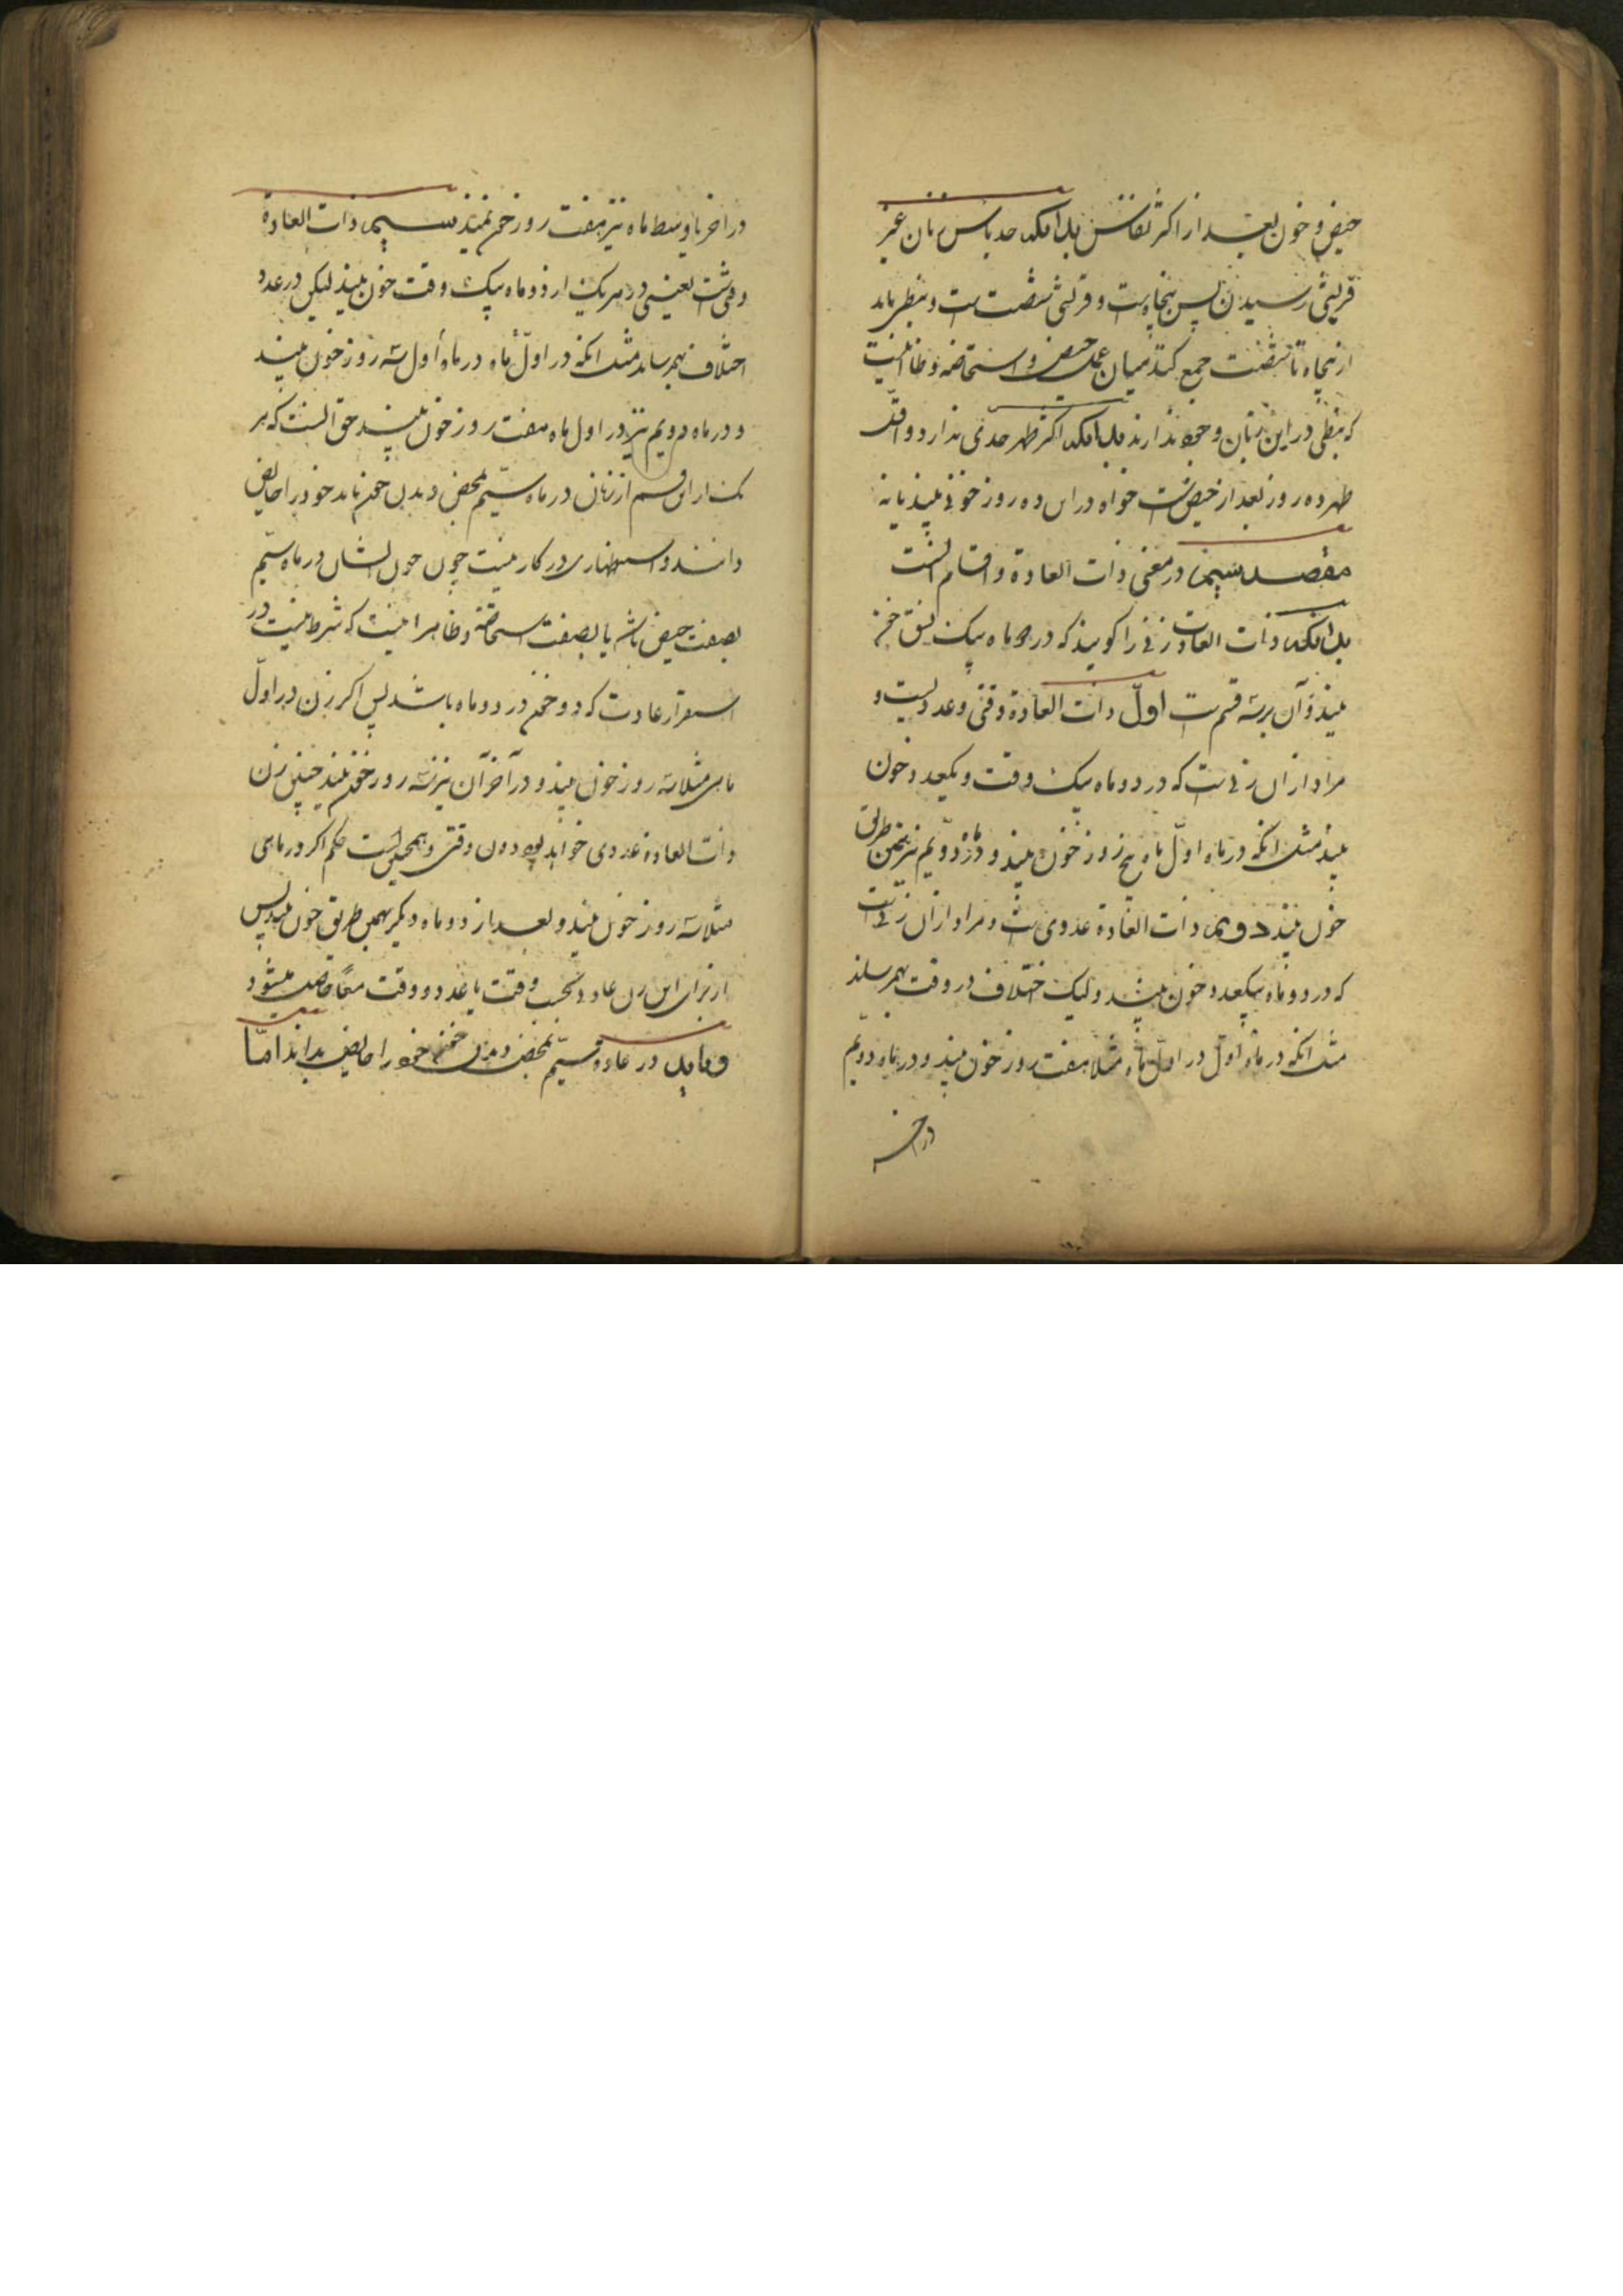 حیض و خون بعد از اکثر نفاس بدانکه حد یاس زنان غیر
قریشی رسیدن بسن پنجاه است و قریشی شصت است و نبطی باید
از پنجاه تا شصت جمع کند میان عمل حیض و استحاضه و ظا اینست
که نبطی در این زمان وجود ندارند بدانکه اکثر طهر حدی ندارد و اقل
طهر ده روز بعد از حیض است خواه در این ده روز خونی بیند یا نه
مقصد سیم در معنی ذات العادة و اقسام آنست
بدانکه ذات العادت زنی را گویند که در دو ماه بیک نسق خون
بیند و آن بر سه قسم است اول ذات العادة وقتی و عددیست و
مراد از آن زنی است که در دو ماه بیک وقت و بیکعدد خون
بیند مثل آنکه در ماه اول ماه پنج روز خون بیند و در ماه دویم نیز بهمین طریق
خون بیند دویم ذات العادة عددی است و مراد از آن زنی است
که در دو ماه بیکعدد خون بیند و لیک اختلاف در وقت بهمرساند
مثل آنکه در ماه اول در اول ماه مثلا هفت روز خون بیند و در ماه دویم
در اخر
در اخر یا وسط ماه نیز هفت روز خون بیند سیم ذات العادة
وقتی است یعنی در هر یک از دو ماه بیک وقت خون بیند لیکن در عدد
اختلاف بهمرساند مثل آنکه در اول ماه در ماه اول سه روز خون بیند
و در ماه دویم نیز در اول ماه هفت روز خون بیند حق اینست که هر
یک از این قسم از زنان در ماه سیم بمحض دیدن خون باید خود را حایض
دانند و استظهاری در کار نیست چون خون ایشان در ماه سیم
بصفت حیض باشد یا بصفت استحاضه و ظاهر اینست که شرط نیست در
استقرار عادت که دو خون در دو ماه باشد پس اگر زن در اول
ماهی مثلا سه روز خون بیند و در آخر آن نیز سه روز خون بیند چنین زن
ذات العادة عددی خواهد بود دون وقتی و همچنین است حکم اگر در ماهی
مثلا سه روز خون بیند و بعد از دو ماه دیگر بهمین طریق خون بیند پس
از برای این زن عادت بحسب وقت یا عدد و وقت معا حاصل میشود
و باید در عادة سیم بمحض دیدن خون خود را حایض بداند اما